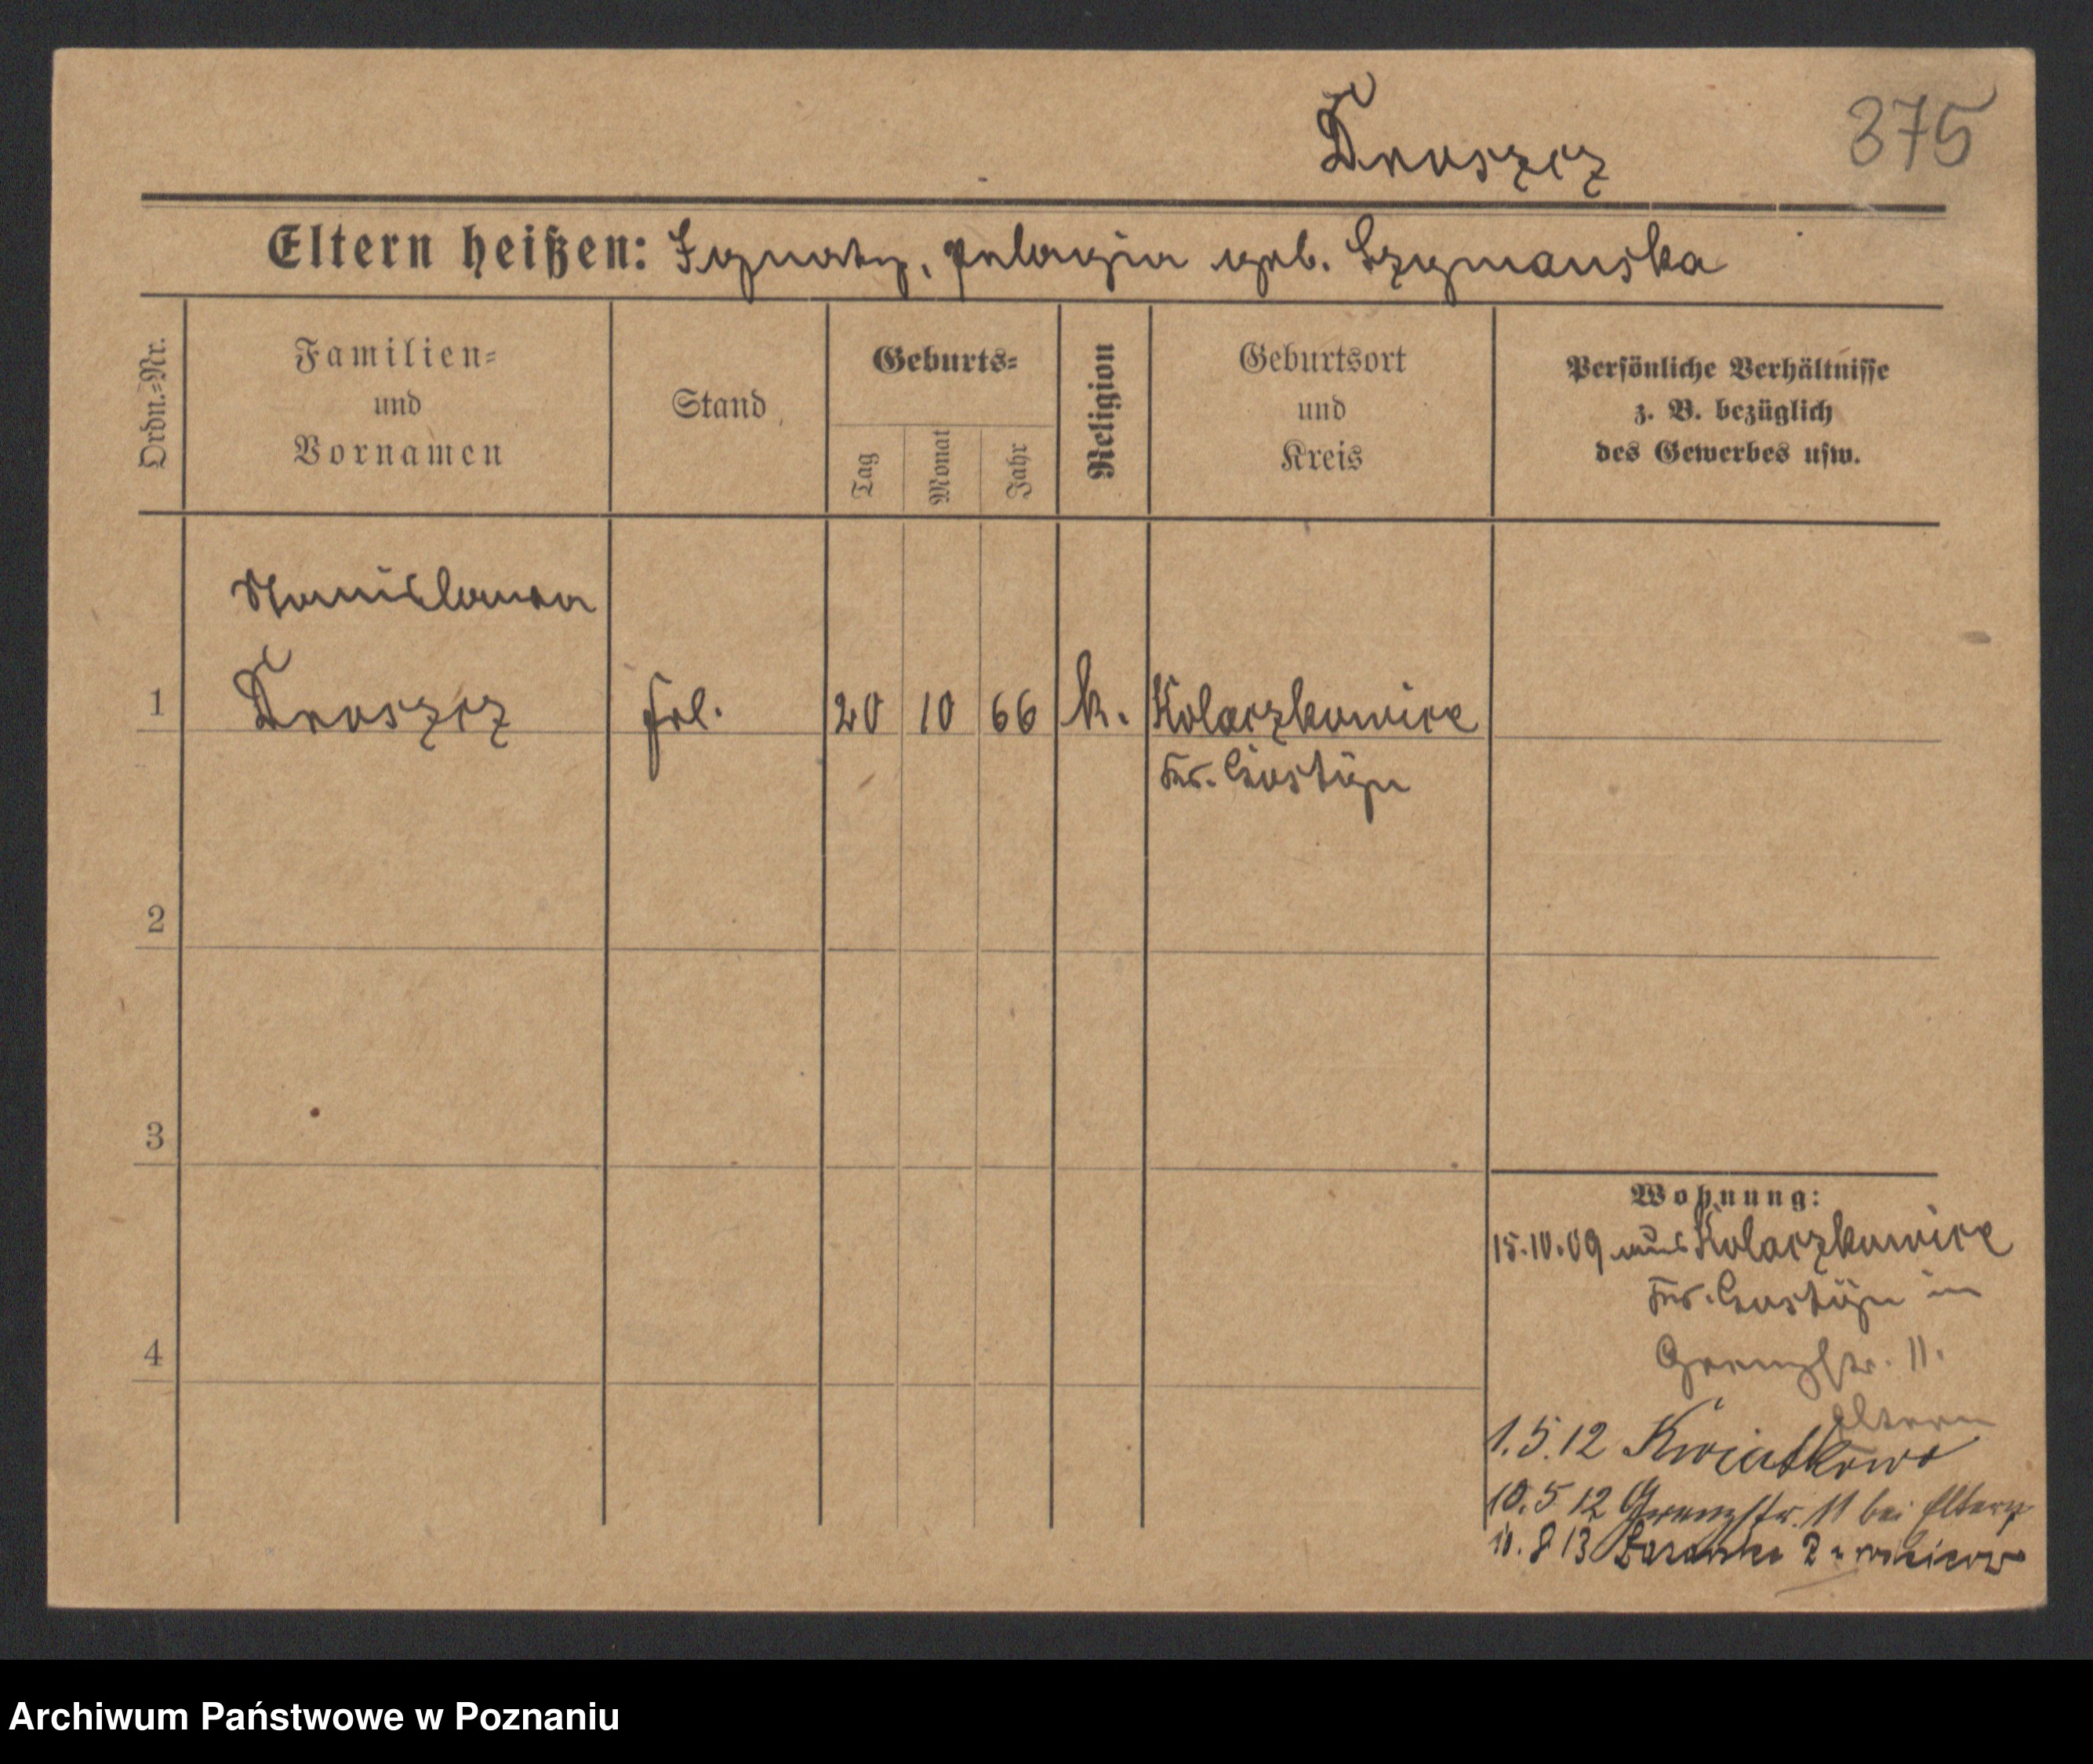 Droszcz 375
Eltern heißen: Ignatz, Pelagia geb. Szymanska
Ordn.-Nr.
Familien-
und
Vornamen
Stand
Geburts-
Tag
Monat
Jahr
Religion
Geburtsort
und
Kreis
Persönliche Verhältnisse
z. B. bezüglich
des Gewerbes usw.
Stanislawa
1 Droszcz frl. 20 10 66 k. Kolaczkowice
Krs. Gostÿn
2
3
4
Wohnung:
15.10.09 aus Kolaczkowice
Krs. Gostÿn in
Grenzstr. 11.
Eltern
1.5.12 Kwiatkowo
10.5 12 Grenzstr. 11 bei Eltern
8 13
Archiwum Państwowe w Poznaniu